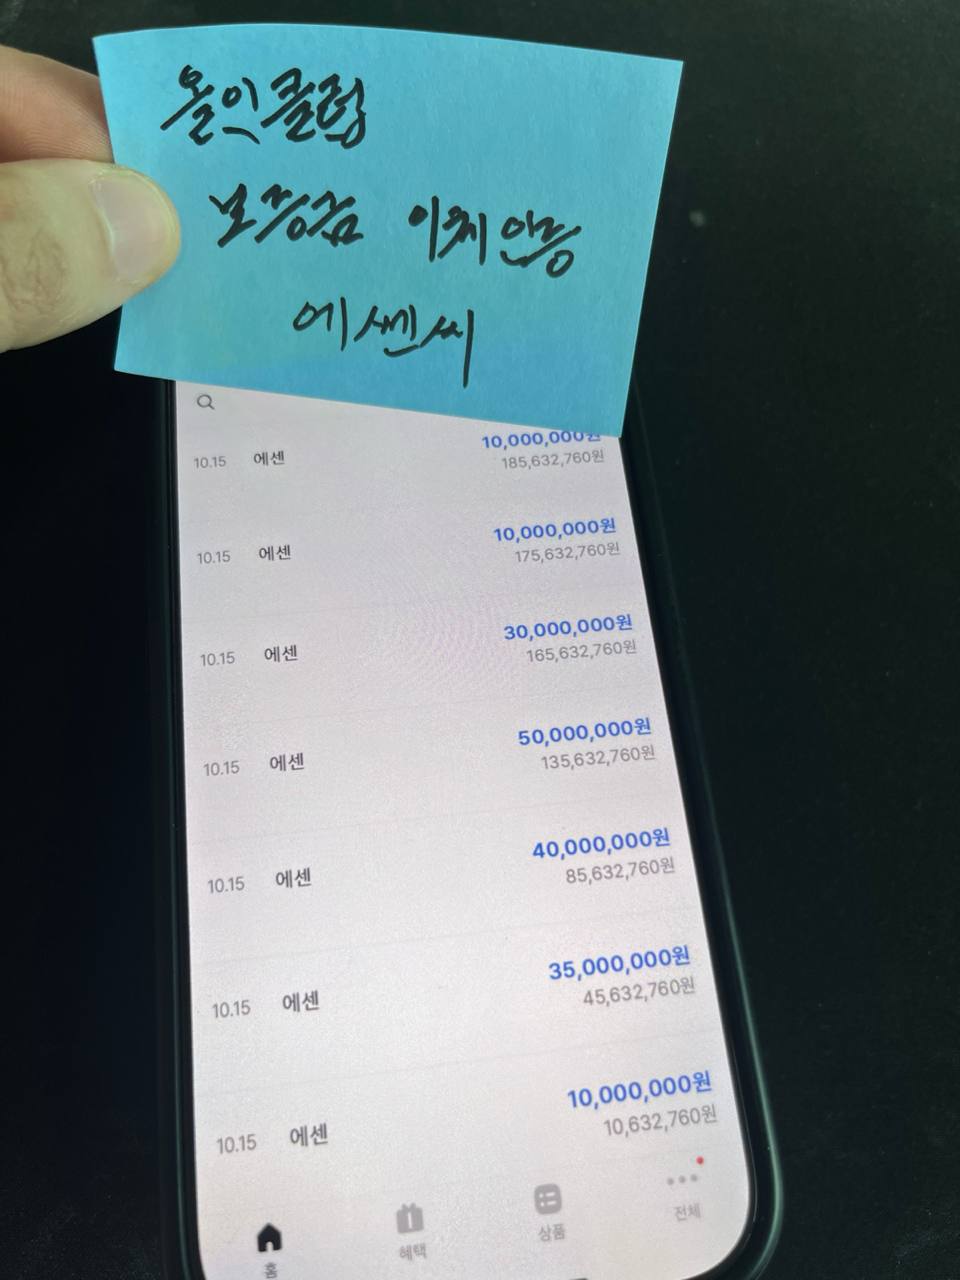 올인클럽
보증금 이체인증
에쎈씨
10.15 에센 10,000,000원
185,632,760원
10.15 에센 10,000,000원
175,632,760원
10.15 에센 30,000,000원
165,632,760원
10.15 에센 50,000,000원
135,632,760원
10.15 에센 40,000,000원
85,632,760원
10.15 에센 35,000,000원
45,632,760원
10.15 에센 10,000,000원
10,632,760원
홈 혜택 상품 전체